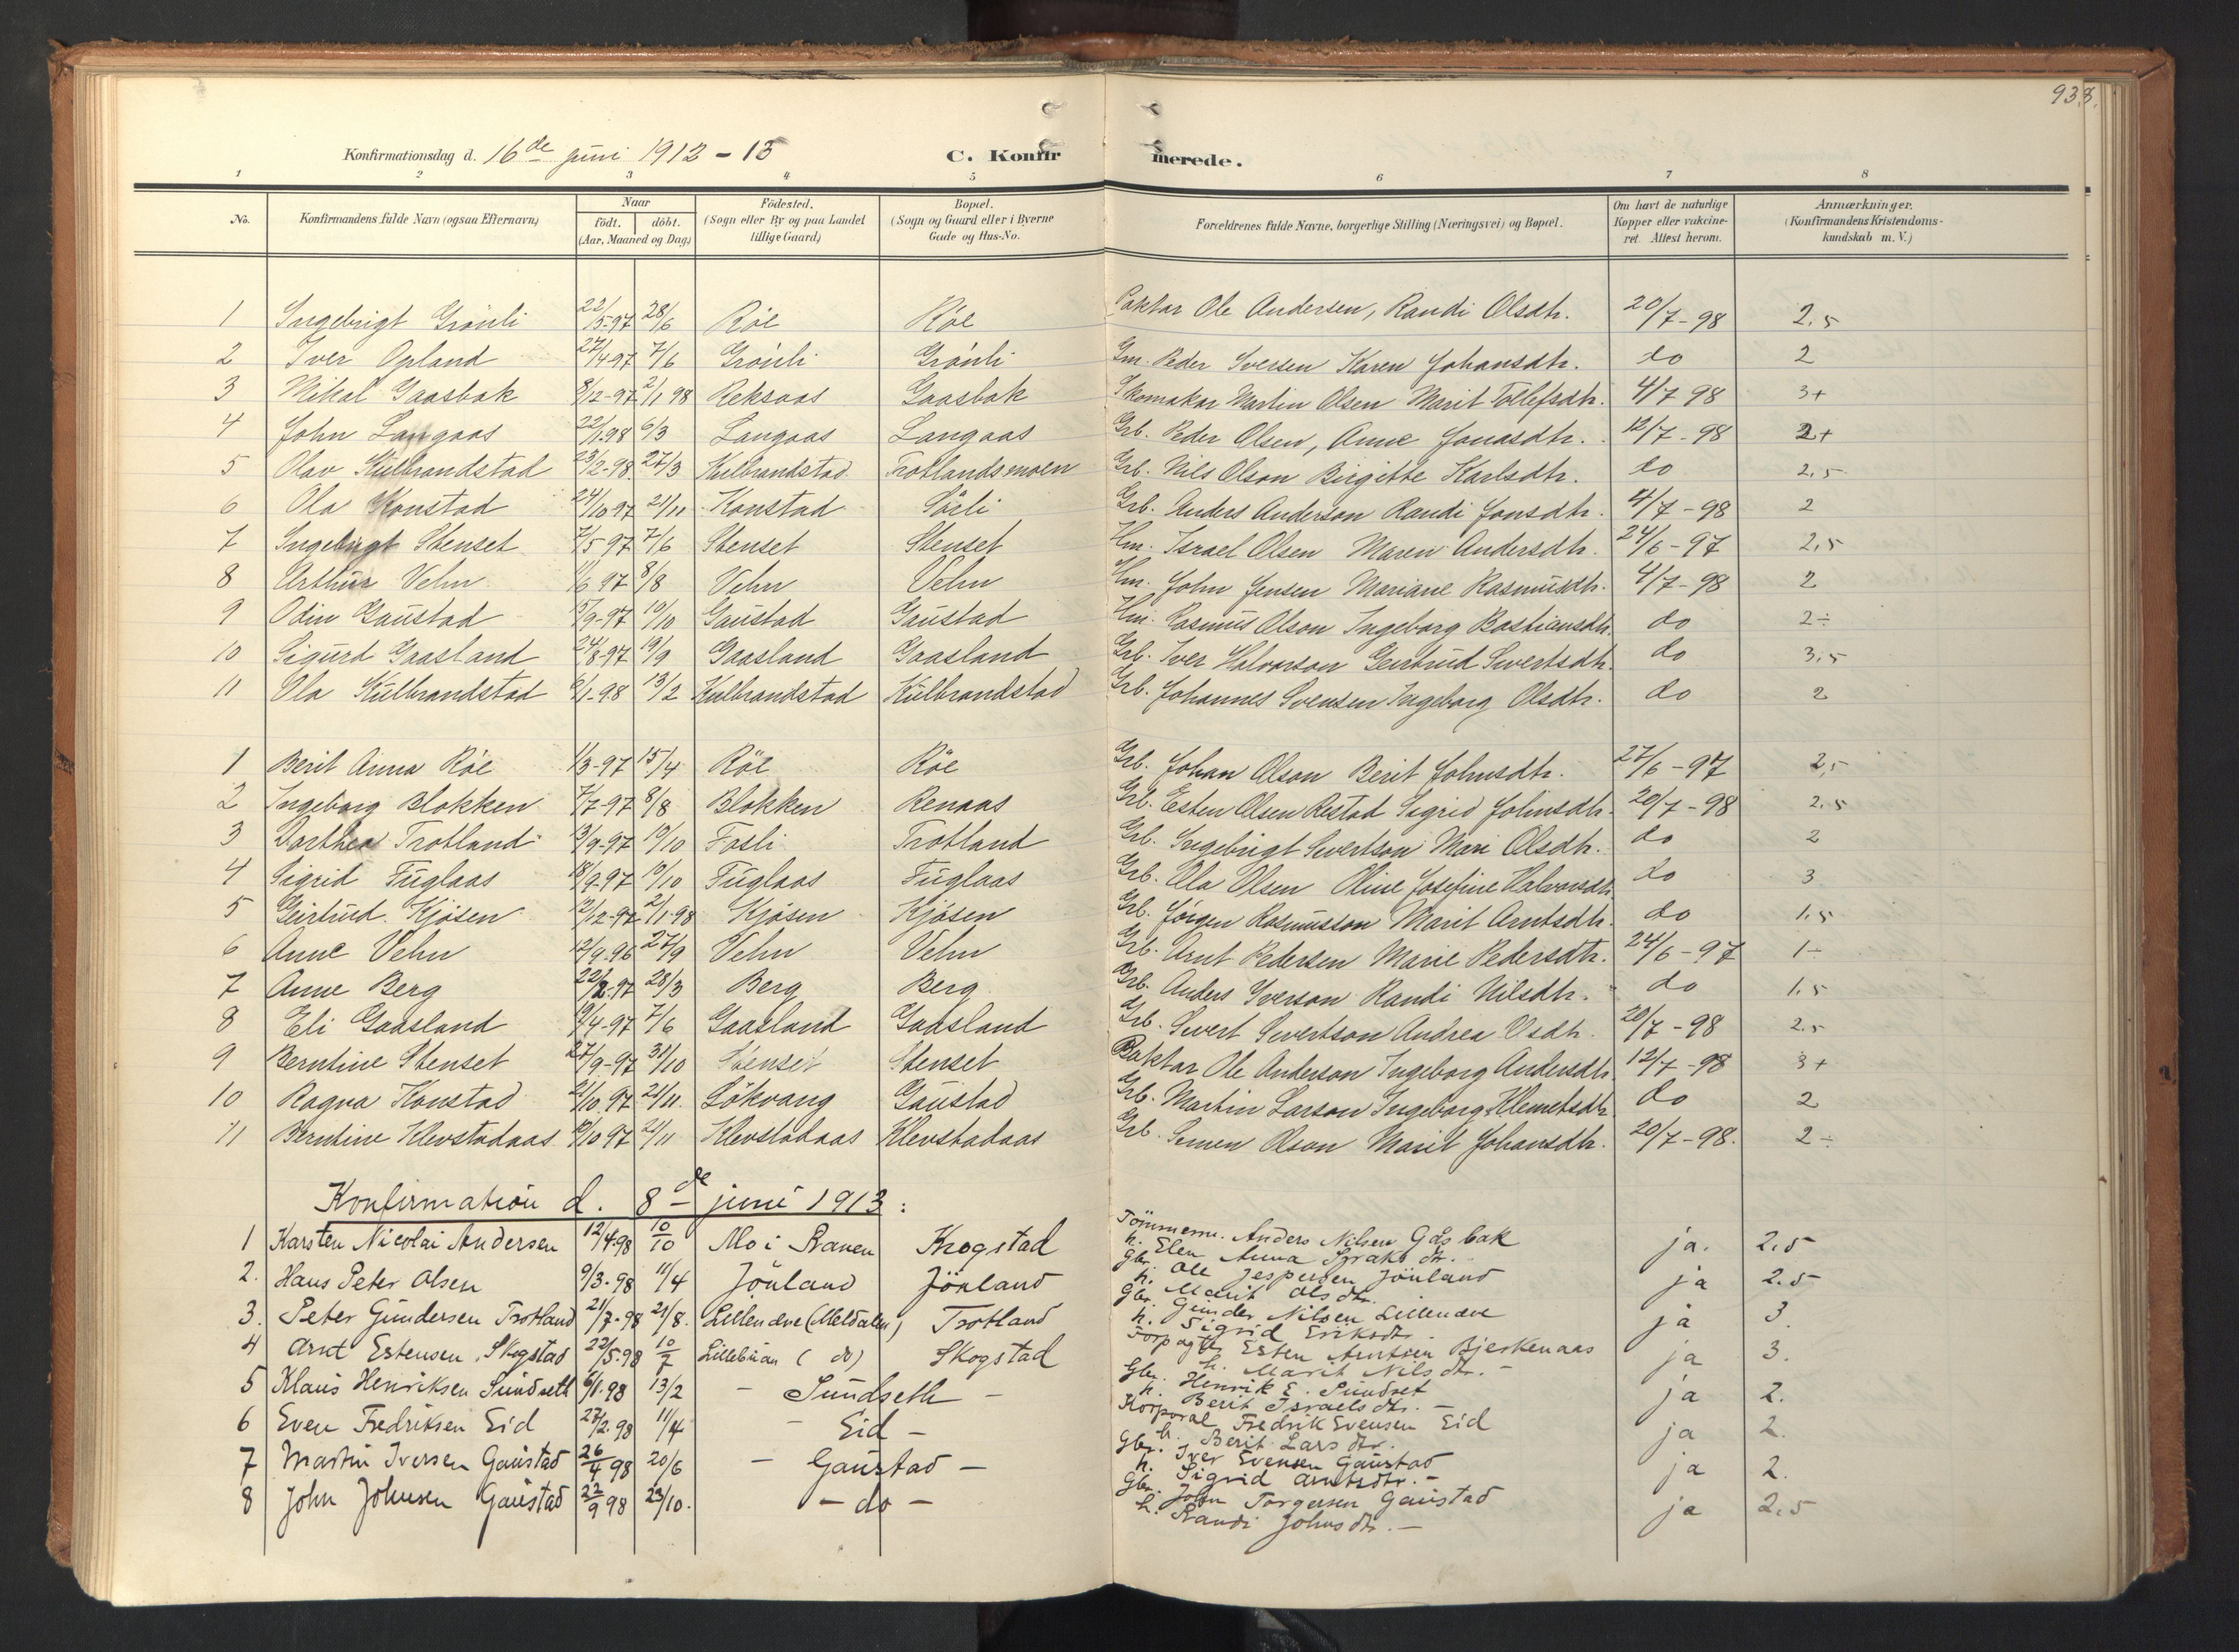 938.
Konfirmationsdag d. 16de juni 1912 - 13 C. Konfirmerede.
1 2 3 4 5 6 7 8
No. Konfirmandens fulde Navn (ogsaa Efternavn) Naar født. døbt. (Aar, Maaned og Dag) Födested. (Sogn eller By og paa Landet tillige Gaard) Bopæl. (Sogn og Gaard eller i Byerne Gade og Hus-No. Forældrenes fulde Navne, borgerlige Stilling (Næringsvei) og Bopæl. Om havt de naturlige Kopper eller vakcineret. Attest herom. Anmærkninger. (Konfirmandens Kristendomskundskab m. V.)
1 Ingebrigt Grönli 22/5-97 28/6 Röe Röe Paktar Ole Andersen, Randi Olsdtr. 20/7-98 2,5
2 Iver Opland 27/4-97 7/6 Grönli Grönli Gm. Peder Iversen Karen Johansdtr. do 2
3 Mikal Gaasbak 8/12-97 2/1 98 Reksaas Gaasbak Skomakar Martin Olsen Marit Tollefsdtr. 4/7 98 3+
4 John Langaas 22/1.98 6/3 Langaas Langaas Grb. Peder Olsen, Anne Jonasdtr. 12/7-98 2+
5 Olav Kulbrandstad 23/2-98. 27/3 Kulbrandstad Trotlandsmoen Grb. Nils Olson Birgitte Karlsdtr. do 2,5
6 Ola Konstad 24/10 97 21/11 Konstad Sörli Grb. Anders Anderson Randi Jonsdtr. 4/7-98 2
7 Ingebrigt Stenset 7/5 97 7/6 Stenset Stenset Hm. Israel Olsen Maren Andersdtr. 24/6-97 2,5
8 Arthur Vehn 11/6 97 8/8 Vehn Vehn Hm. John Jensen Mariane Rasmusdtr. 4/7-98 2
9 Odin Gaustad 15/9-97 10/10 Gaustad Gaustad Hm. Rasmus Olson Ingeborg Bastiansdtr. do 2÷
10 Sigurd Gaasland 24/8-97 19/9 Gaasland Gaasland Grb. Iver Halvorson Geirtrud Sivertsdtr. do 3,5
11 Ola Kulbrandstad 6/1-98 13/2 Kulbrandstad Kulbrandstad Grb. Johannes Svensen Ingeborg Olsdtr. do 2
1 Berit Anna Röe 1/3-97 15/4 Röe Röe Grb. Johan Olson Berit Johnsdtr. 27/6-97 2,5
2 Ingeborg Blokken 7/7-97 8/8 Blokken Renaas Grb. Esten Olsen Restad Sigrid Johnsdtr. 20/7-98 2,5
3 Dorthea Trotland 13/9-97 10/10 Fosli Trotland Grb. Ingebrigt Sivertson Mari Olsdtr. do 2
4 Sigrid Fuglaas 18/9-97 10/10 Fuglaas Fuglaas Grb. Ola Olsen Oline Josefine Halvorsdtr. do 3
5 Geirtrud Kjösen 12/12-97 2/1-98 Kjösen Kjösen Grb. Jörgen Rasmusson Marit Arntsdtr. do 1,5
6 Anne Vehn 12/9-96 27/9 Vehn Vehn Grb. Arnt Pedersen Marie Pedersdtr. 24/6-97 1÷
7 Anne Berg 22/2-97 28/3 Berg Berg Grb. Anders Iverson Randi Nilsdtr. do 1,5
8 Eli Gaasland 19/4-97 7/6 Gaasland Gaasland Grb. Sivert Sivertson Andrea Osdtr. 20/7-98 2,5
9 Berntine Stenset 27/9-97 31/10 Stenset Stenset Paktar Ole Anderson Ingeborg Andersdtr. 12/7-98 3+
10 Ragna Konstad 21/10.97 21/11. Lökvang Gaustad Grb. Martin Larson Ingeborg Klemetsdtr. do 2
11 Berntine Klevstadaas 19/10 97 21/11 Klevstadaas Klevstadaas Grb. Simen Olson Marit Johansdtr. 20/7-98. 2÷
Konfirmation d. 8de juni 1913:
1 Karsten Nicolai Andersen 12/4.98 10/10 Mo i Ranen Krogstad Tömmerm. Anders Nilsen Gåsbak h. Elen Anna Isaksdtr. ja. 2.5
2. Hans Peter Olsen 9/3-98 11/4 Jönland Jönland Gbr. Ole Jespersen Jönland h. Marit Olsdtr. ja 2.5
3. Peter Gundersen Trotland 21/7-98 21/8. Lillenæve (Meldalen) Trotland Gbr. Gunder Nilsen Lillenæve h. Sigrid Eriksdtr. ja 3.
4 Arnt Estensen Skogstad 22/5.98 10/7 Lillebuan ( do) Skogstad Forpagter Esten Arntsen Bjerkenaas h. Marit Nilsdtr. - ja 3.
5 Klaus Henriksen Sundseth 6/1.98 13/2 - Sundseth - Gbr. Henrik E. Sundset h. Berit Israelsdtr. - ja 2.
6 Even Fredriksen Eid 27/2.98 11/4 - Eid - Korporal Fredrik Evensen Eid h. Berit Larsdtr. ja 2.
7 Martin Iversen Gaustad 26/4 98 20/6 - Gaustad - Gbr. Iver Evensen Gaustad h. Sigrid Arntsdtr. - ja 2.
8 John Johnsen Gaustad 22/9 98 23/10. - do - Gbr. John Torgersen Gaustad h. Randi Johnsdtr. - ja 2.5